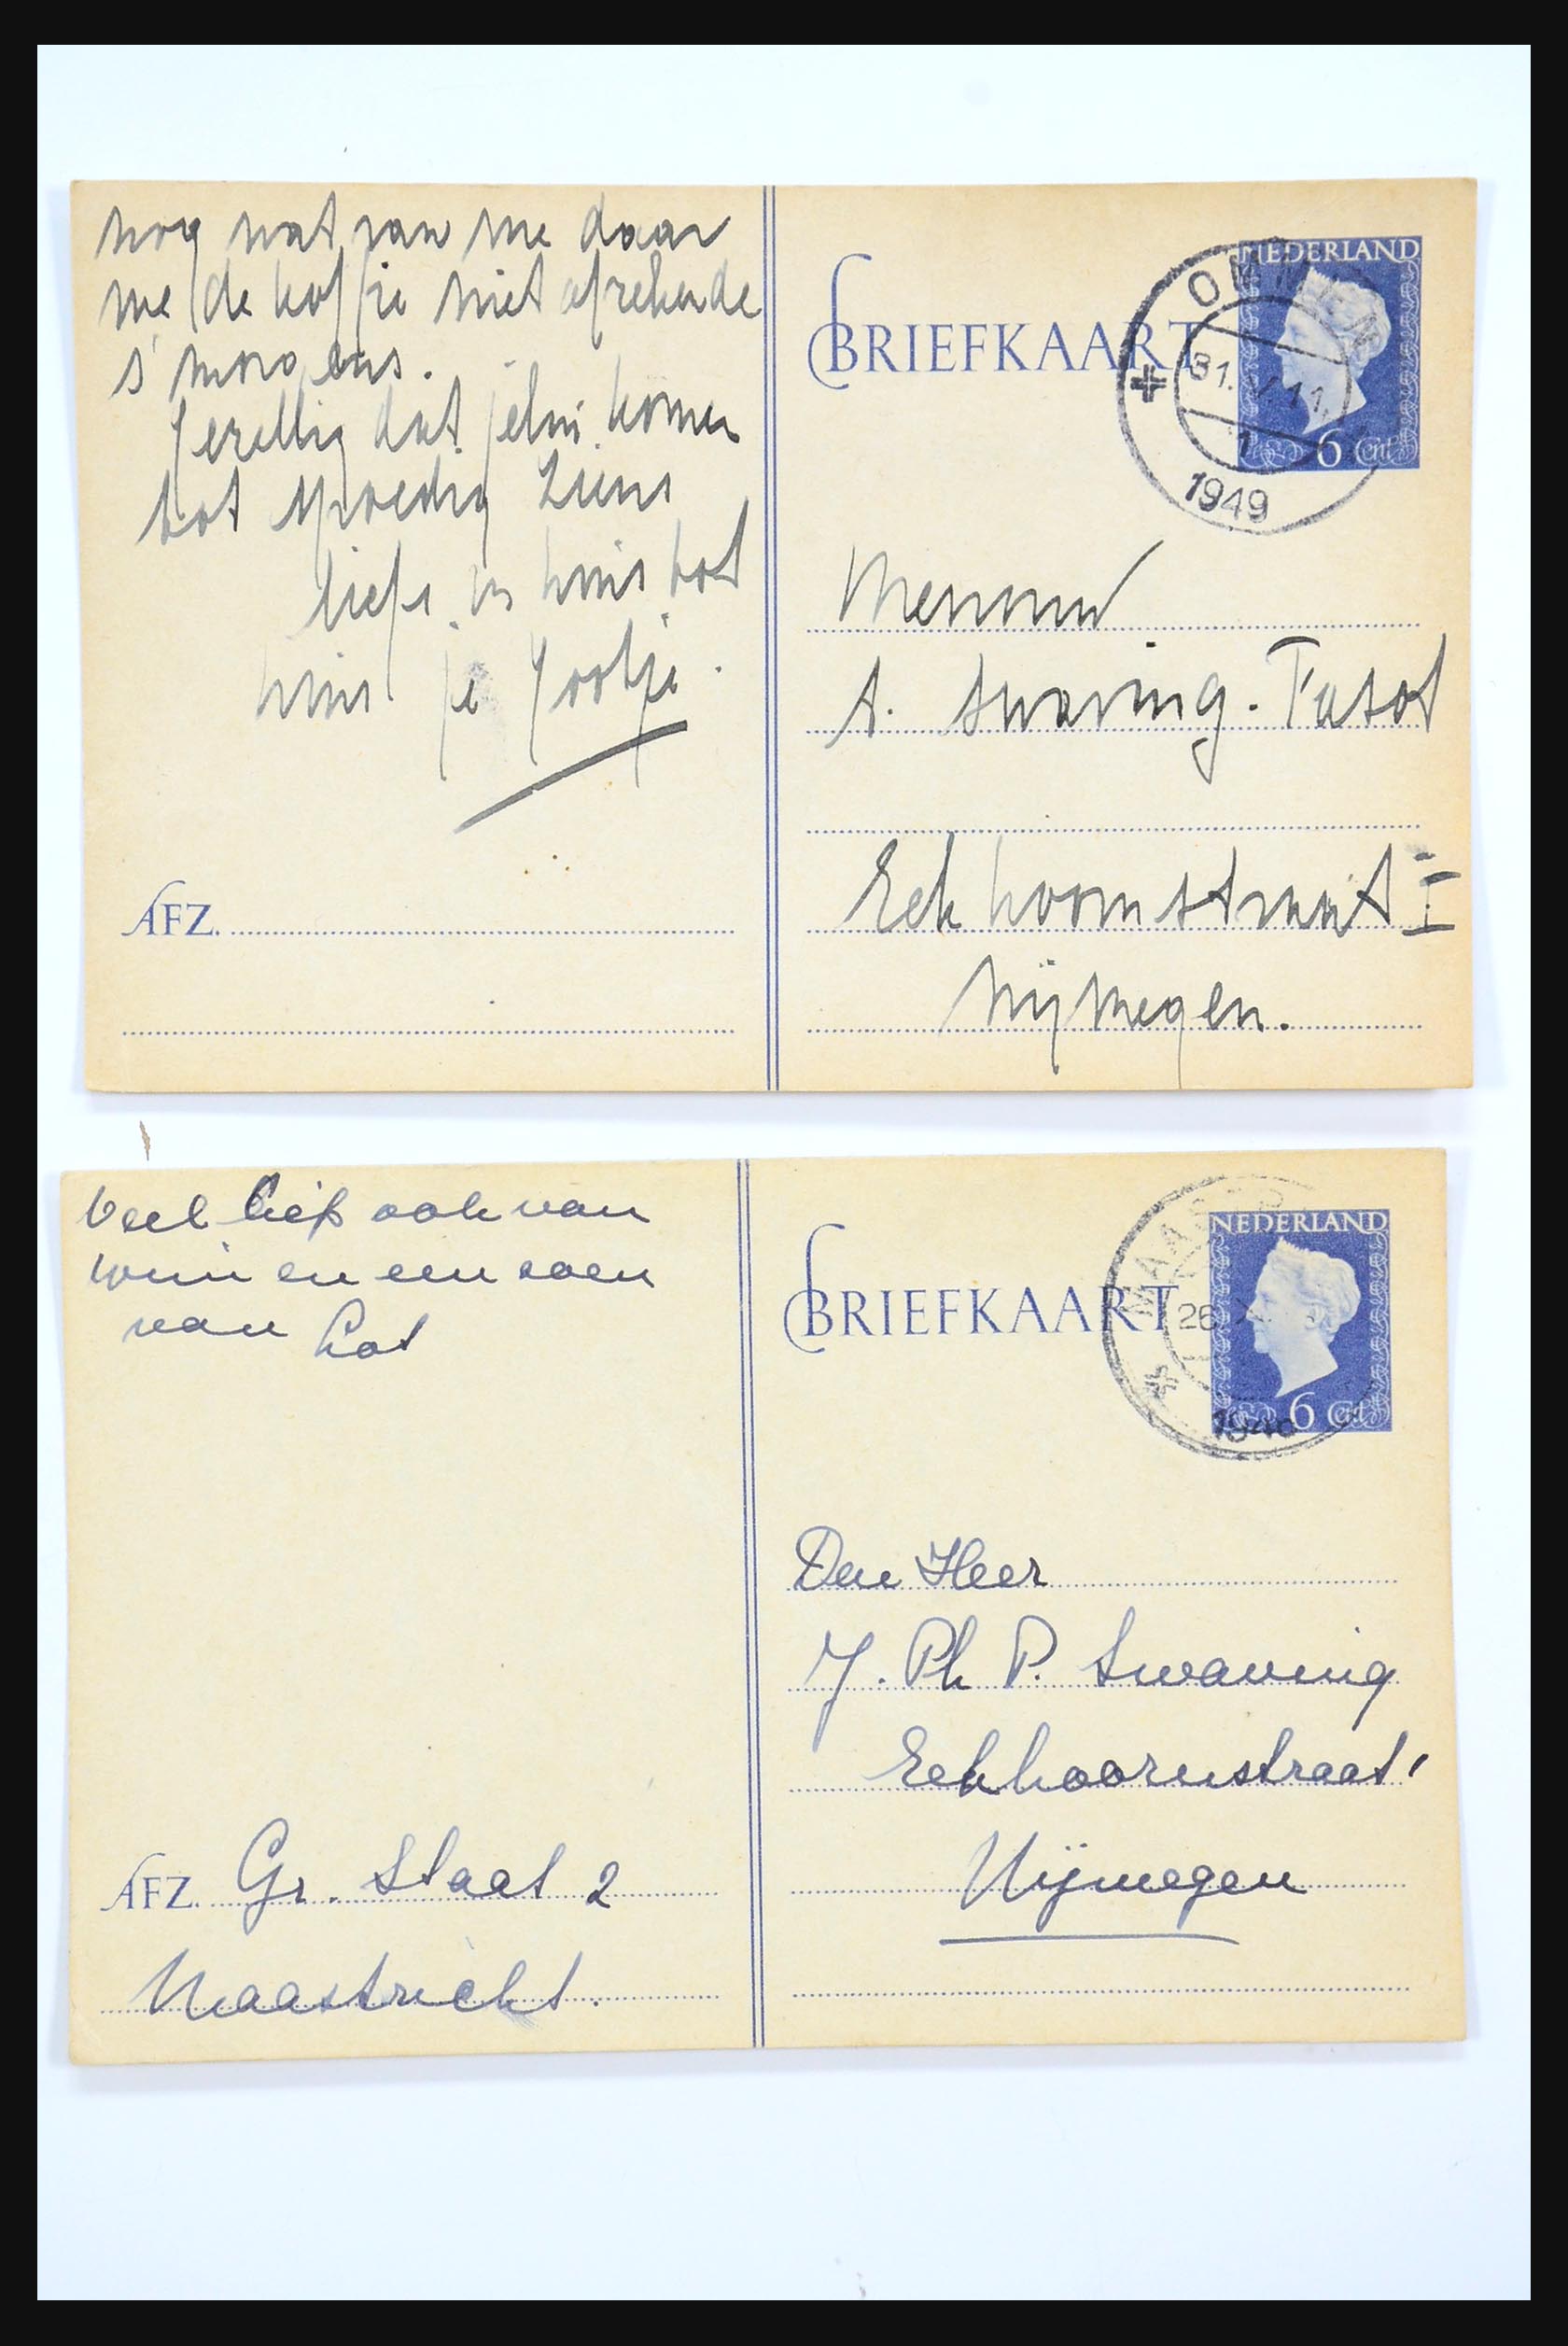 nog wat van me daar
me de koffie niet afrekende
s' morgens.
Gezellig dat jelui komen
tot spoedig ziens
liefs v. huis tot
huis je Jootje.
AFZ.
BRIEFKAART
NEDERLAND
6 Cent
OMMEN
31. V. 11.
1949
Mevrouw
A. Swaving. Tasot
Eekhoornstraat I
Nijmegen.
Veel liefs ook van
Wim en een zoen
van Lot
AFZ. Gr. Staat 2
Maastricht.
BRIEFKAART
NEDERLAND
6 Cent
26
Den Heer
J. Ph P. Swaving
Eekhoornstraat 1
Nijmegen